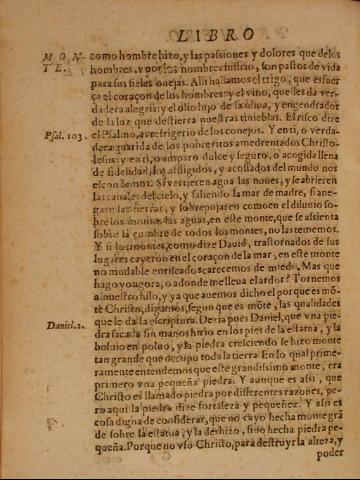 LIBRO
MON-
TE.
como hombre hizo, y las passiones y dolores que de los
hombres, y por los hombres sufrio, son pastos de vida
para sus fieles ouejas. Alli hallamos el trigo, que esfuer
ça el coraçon de los hombres: y el vino, que les da ver-
dadera alegria: y el olio hijo de la oliua, y engendrador
de la luz que destierra nuestras tinieblas. El risco dize
Psal. 103.
el Psalmo, a refrigerio de los conejos. Y en ti, o verda-
dera guarida de los pobrezitos amedrentados Christo-
Iesus: y en ti, o amparo dulce y seguro, o acogida llena
de fidelidad, los affligidos, y acossados del mundo nos
escondemos. Si vertieren agua las nuues, y se abrieren
las canales del cielo, y saliendo la mar de madre, si ane-
gare las tierras, y sobrepujaren como en el diluuio so-
bre los montes las aguas, en este monte, que se assienta
sobre la cumbre de todos los montes, no las tememos.
Y si los montes, como dize Dauid, trastornados de sus
lugares cayeron en el coraçon de la mar, en este monte
no mudable enriscados carecemos de miedo. Mas que
hago yo agora, o adonde me lleua el ardor? Tornemos
a nuestro hilo, y ya que auemos dicho el porque es mõ-
te Christo, digamos, segun que es mõte, las qualidades
Daniel. 2.
que le da la escriptura. Dezia pues Daniel, que vna pie-
dra sacada sin manos hirio en los pies de la estatua, y la
boluio en poluo, y la piedra cresciendo se hizo monte
tan grande que occupo toda la tierra. En lo qual prime-
ramente entendemos que este grandissimo monte, era
primero vna pequeña piedra. Y aunque es assi, que
Christo es llamado piedra por differentes razones, pe-
ro aqui la piedra dize fortaleza y pequeñez. Y assi es
cosa digna de considerar, que no cayo hecha monte grã
de sobre la estatua, y la deshizo, sino hecha piedra pe-
queña. Porque no vso Christo, para destruyr la alteza, y
poder